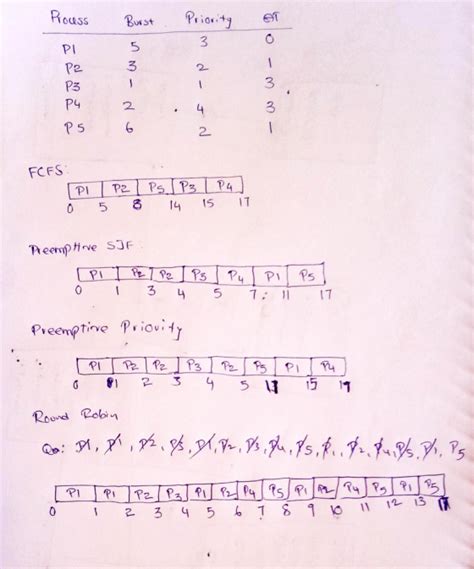 Process Burst Priority
P1 5 3 0
P2 3 2 1
P3 1 1 3
P4 2 4 3
P5 6 2 1
FCFS:
P1 P2 P5 P3 P4
0 5 8 14 15 17
Preemptive SJF:
P1 P2 P2 P3 P4 P1 P5
0 1 3 4 5 7 11 17
Preemptive Priority
P1 P2 P2 P3 P2 P5 P1 P4
0 1 2 3 4 5 15
Round Robin
P1, P1, P2, P3, P1, P2, P3, P4, P5, P1, P2, P4, P5, P1, P5
P1 P1 P2 P3 P1 P2 P4 P5 P1 P2 P4 P5 P1 P5
0 1 2 3 4 5 6 7 8 9 10 11 12 13